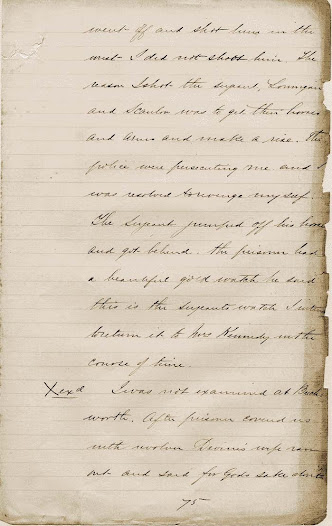 went off and shot him in the
west I did not shoot him. The
reason I shot the sergeant, Lonnigan
and Scanlon was to get their horses
and arms and make a rise. The
police were persecuting me and I
was resolved to revenge myself.
The Sergeant jumped off his horse
and got behind. The prisoner had
a beautiful gold watch he said
this is the sergeants watch I intend
to return it to Mrs Kennedy in the
course of time.
Xexd I was not examined at Beech
worth. After prisoner covered us
with revolver Devine's wife ran
out and said for Gods sake don't
75